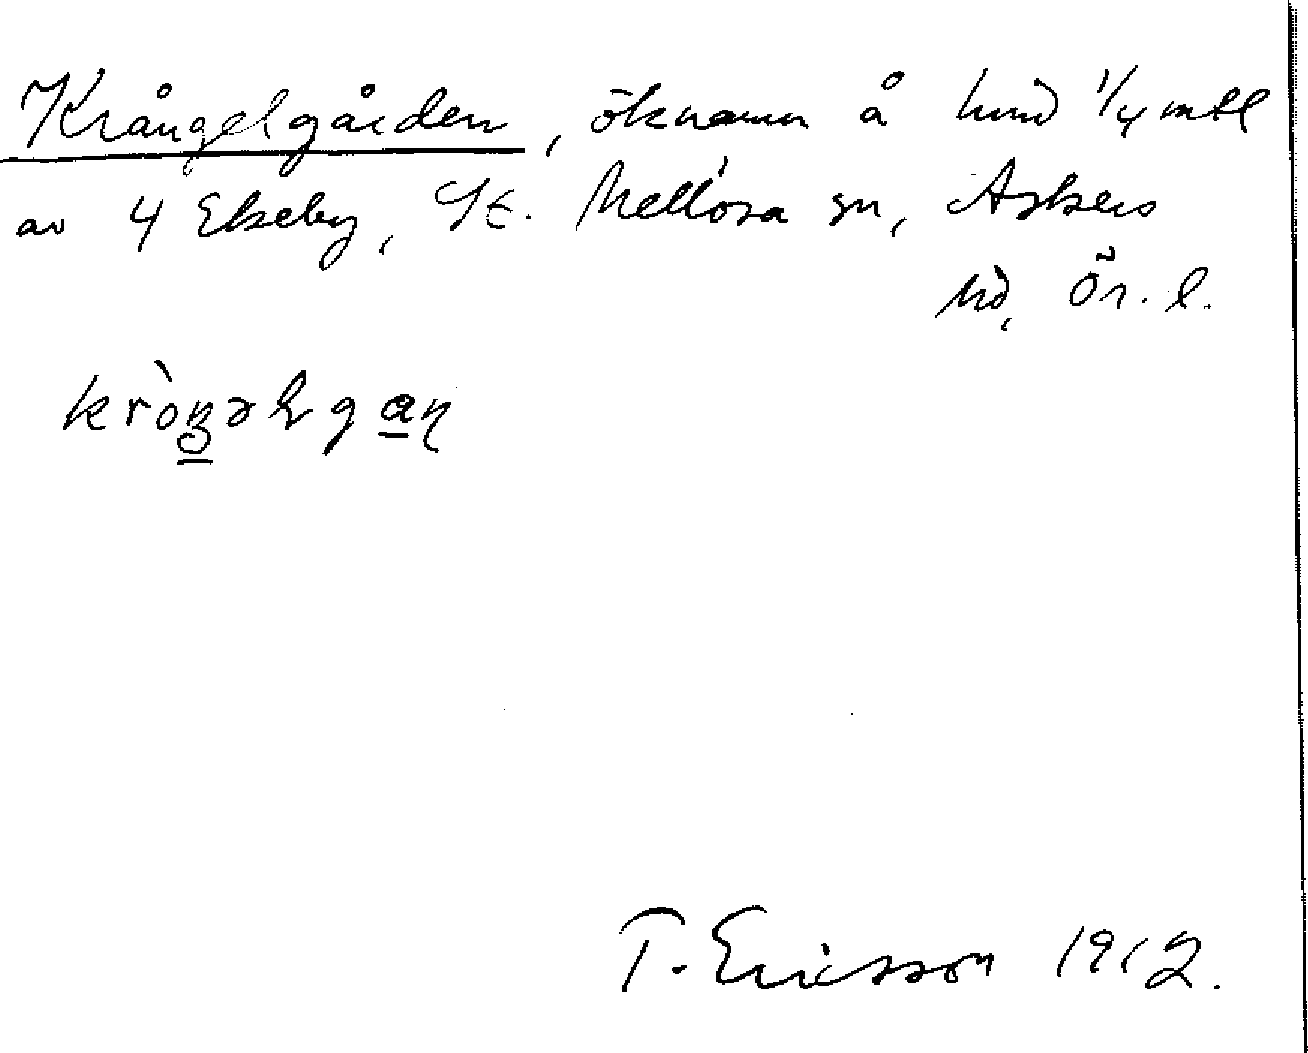 Krångelgården, öknamn å hmd 1/4 mtl
av 4 Ekeby, St. Mellösa sn, Askers
hd, Ör. l.
T. Ericsson 1912.